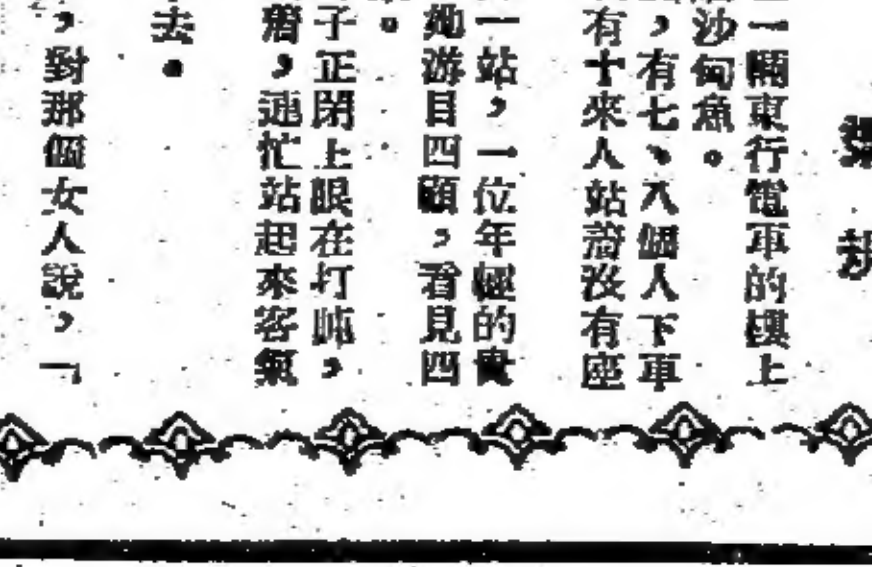 胡
一輛東行電車的樓上
沙甸魚。
，有七、八個人下車
有十來人站着沒有座
一站，一位年輕的貴
她游目四顧，看見四
。
子正閉上眼在打盹，
，連忙站起來客氣
去。
，對那個女人說，「